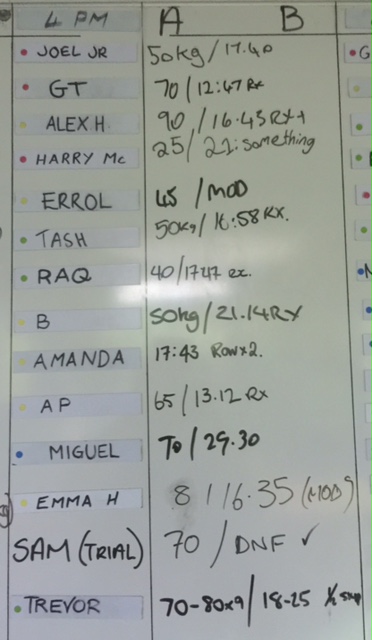 4 PM A B
JOEL JR 50kg / 17.40
GT 70 / 12:47 Rx
ALEX H 90 / 16.45 RX+
HARRY Mc 25 / 21:something
ERROL 45 / MOD
TASH 50kg / 16:58 RX.
RAQ 40 / 1747 rx.
B 50kg / 21.14 RX
AMANDA 17:43 Row x 2.
AP 65 / 13.12 Rx
MIGUEL 70 / 29.30
EMMA H 8 / 16.35 (MOD)
SAM (TRIAL) 70 / DNF ✓
TREVOR 70-80x9 / 18-25 1/2